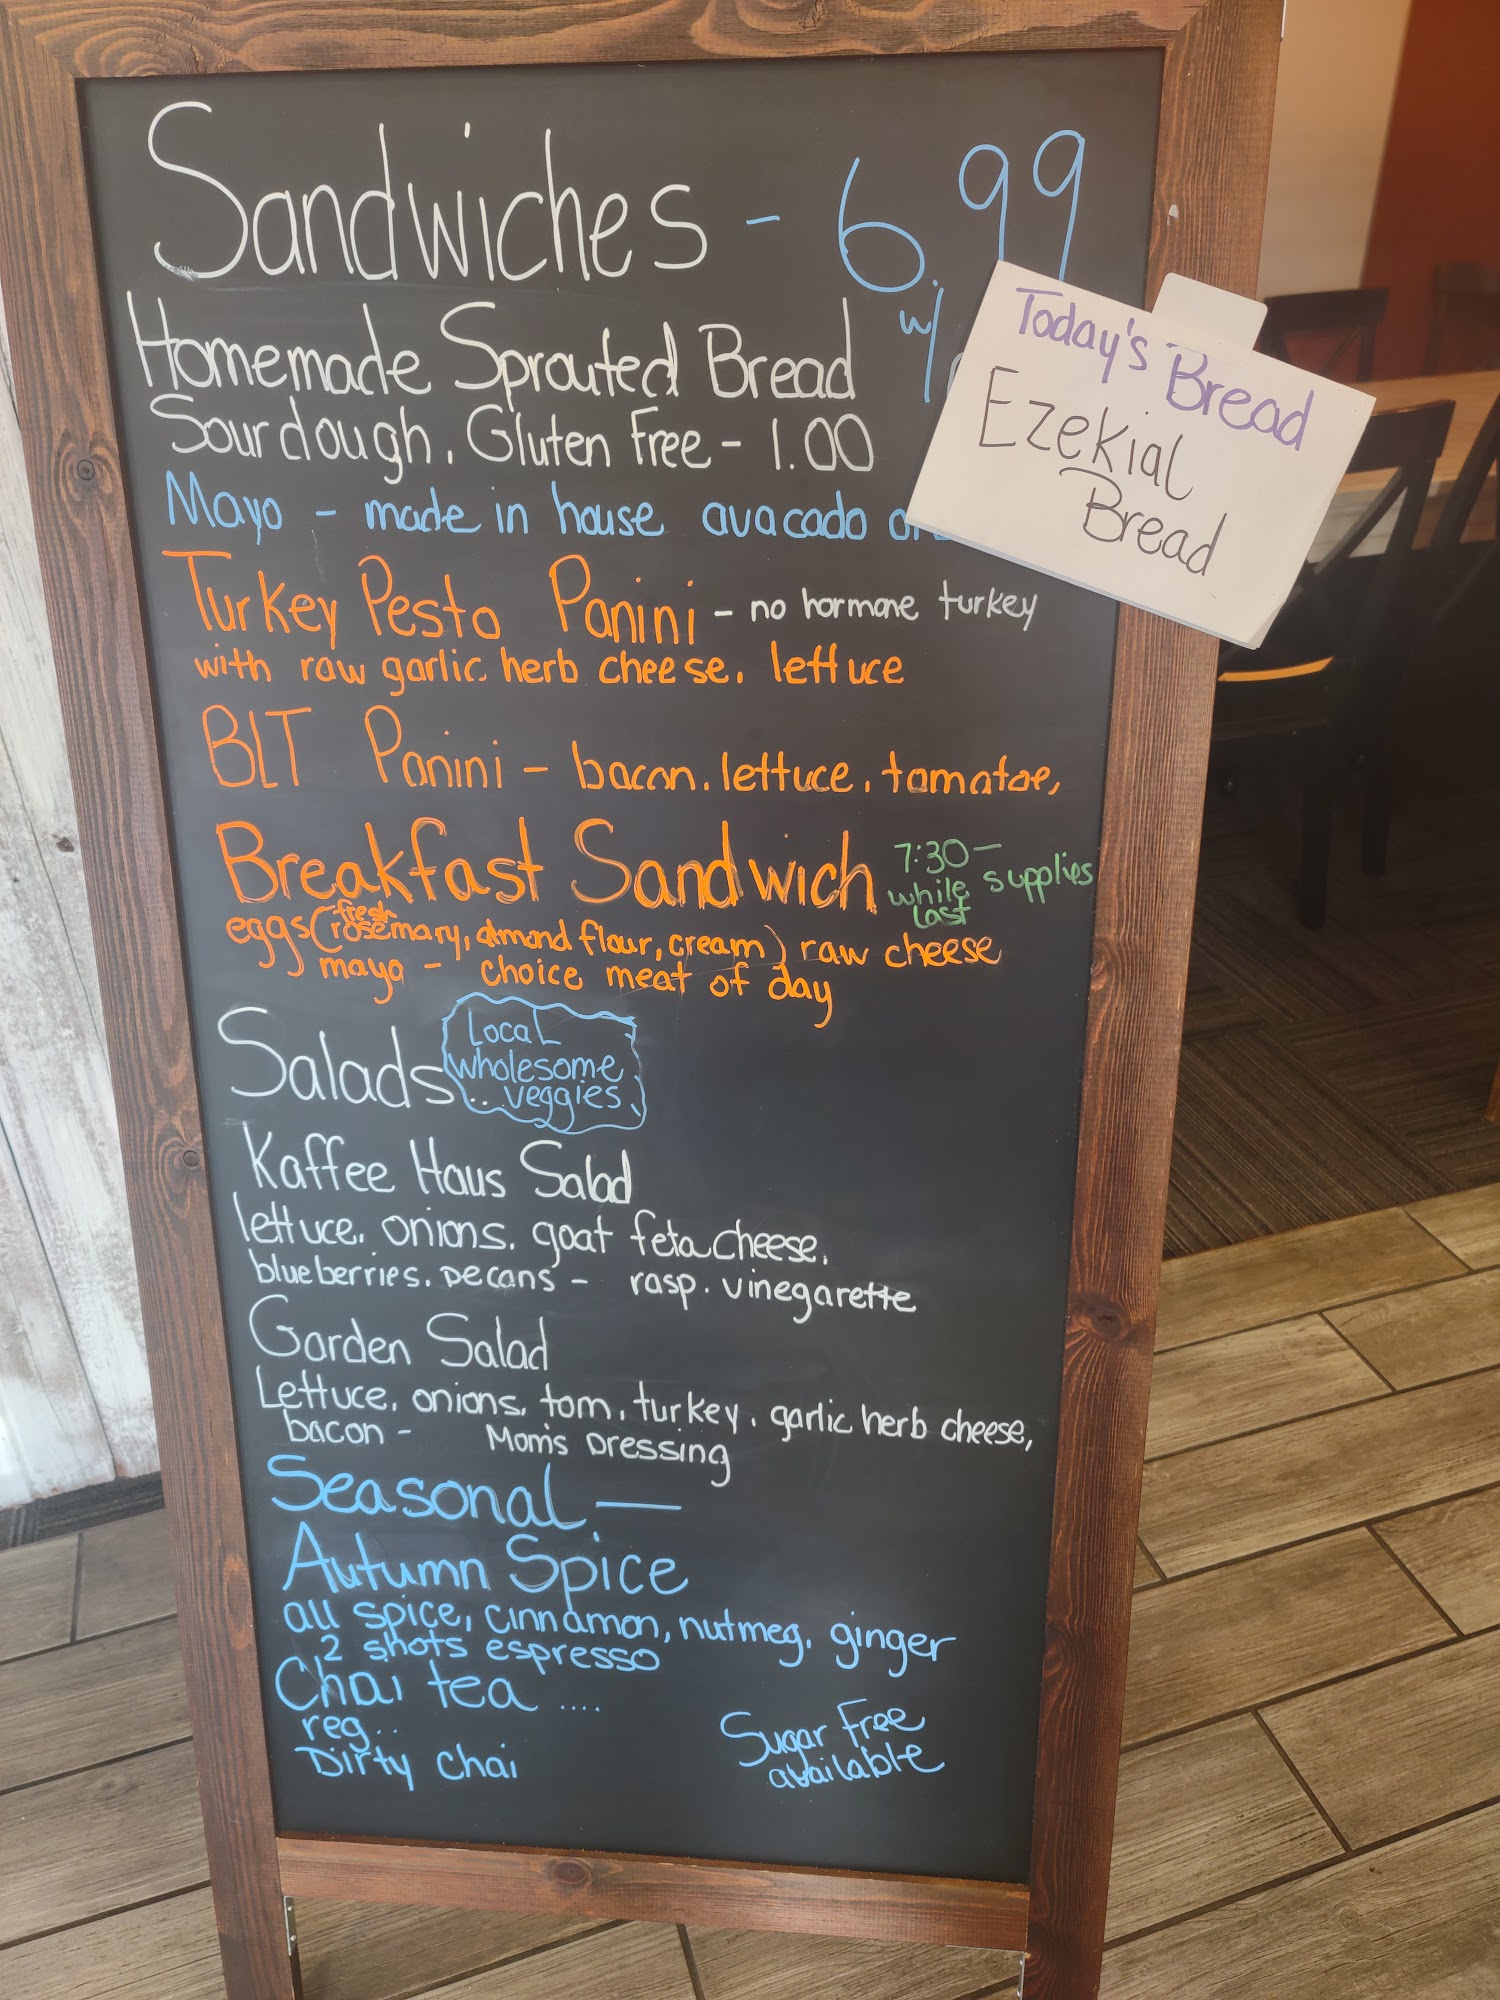 Sandwiches - 6.99
w/
Homemade Sprouted Bread
Sourdough, Gluten Free - 1.00
Mayo - made in house avacado
Today's Bread
Ezekial
Bread
Turkey Pesto Panini - no hormone turkey
with raw garlic herb cheese, lettuce
BLT Panini - bacon, lettuce, tomatoe,
Breakfast Sandwich 7:30 -
while supplies
last
eggs (fresh rosemary, almond flour, cream) raw cheese
mayo - choice meat of day
Salads..
Local
wholesome
veggies
Kaffee Haus Salad
lettuce, onions, goat feta cheese,
blueberries, pecans - rasp. vinegarette
Garden Salad
Lettuce, onions, tom, turkey, garlic herb cheese,
bacon - Mom's Dressing
Seasonal —
Autumn Spice
all spice, cinnamon, nutmeg, ginger
2 shots espresso
Chai tea ....
reg..
Dirty Chai
Sugar Free
available